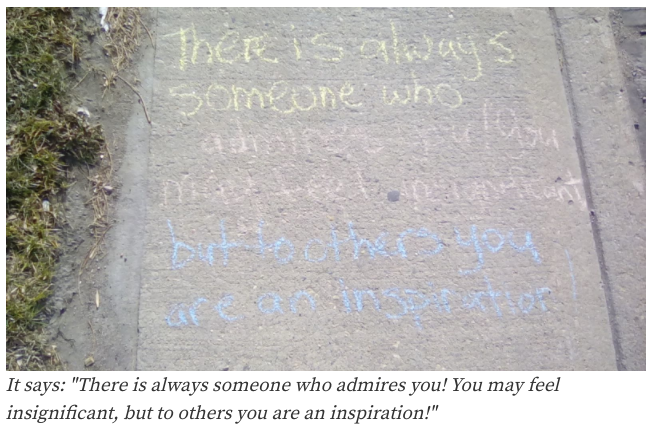 There is always
someone who
admires you! You
may feel insignificant
but to others you
are an inspiration!
It says: "There is always someone who admires you! You may feel
insignificant, but to others you are an inspiration!"